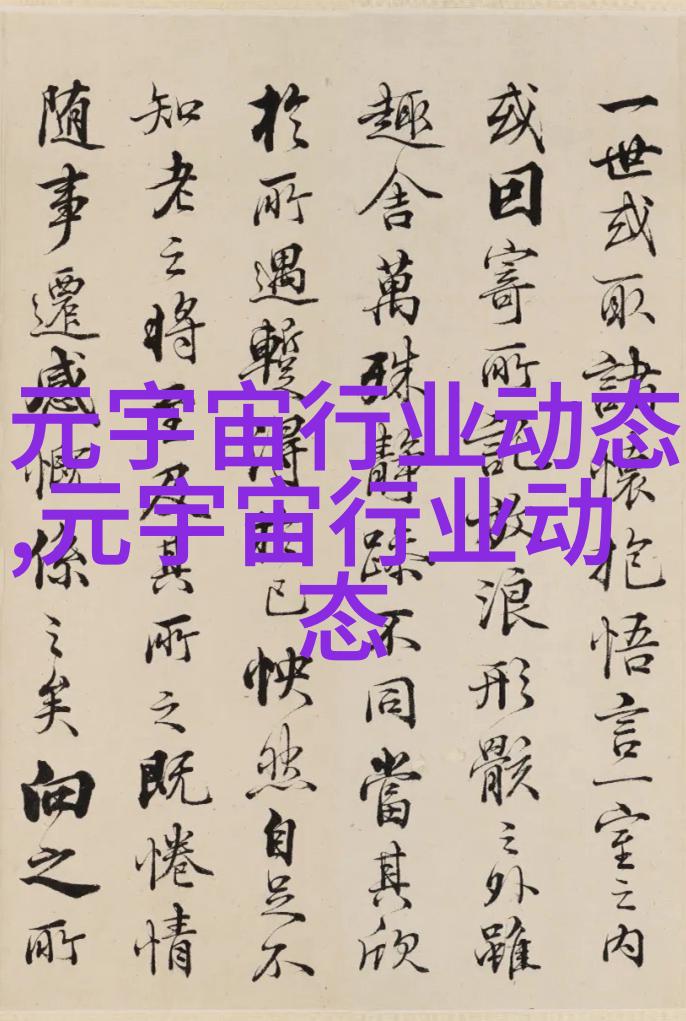 一世或取諸懷抱悟言一室之內
或因寄所託放浪形骸之外雖
趣舍萬殊靜躁不同當其欣
於所遇蹔得於己怏然自足不
知老之將至及其所之既惓情
随事遷感慨係之矣向之所
元宇宙行业动态
,元宇宙行业动
态